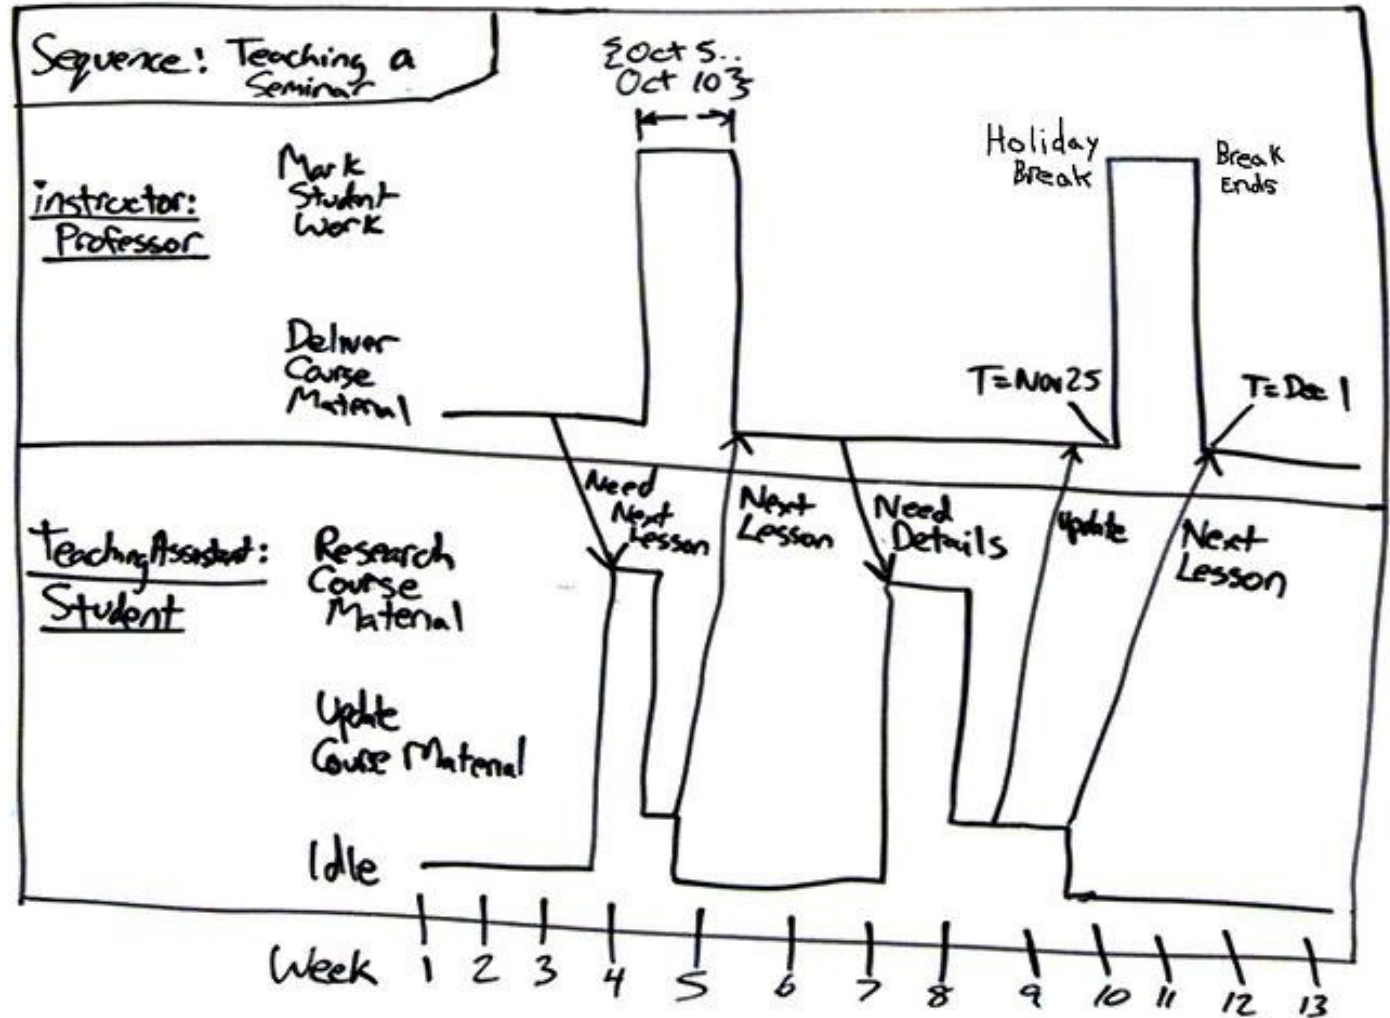 Sequence: Teaching a
Seminar
{Oct 5..
Oct 10}
instructor:
Professor
Mark
Student
Work
Deliver
Course
Material
Holiday
Break
Break
Ends
T=Nov 25
T=Dec 1
Need
Next
Lesson
Next
Lesson
Need
Details
Update
Next
Lesson
Teaching Assistant:
Student
Research
Course
Material
Update
Course Material
Idle
Week 1 2 3 4 5 6 7 8 9 10 11 12 13